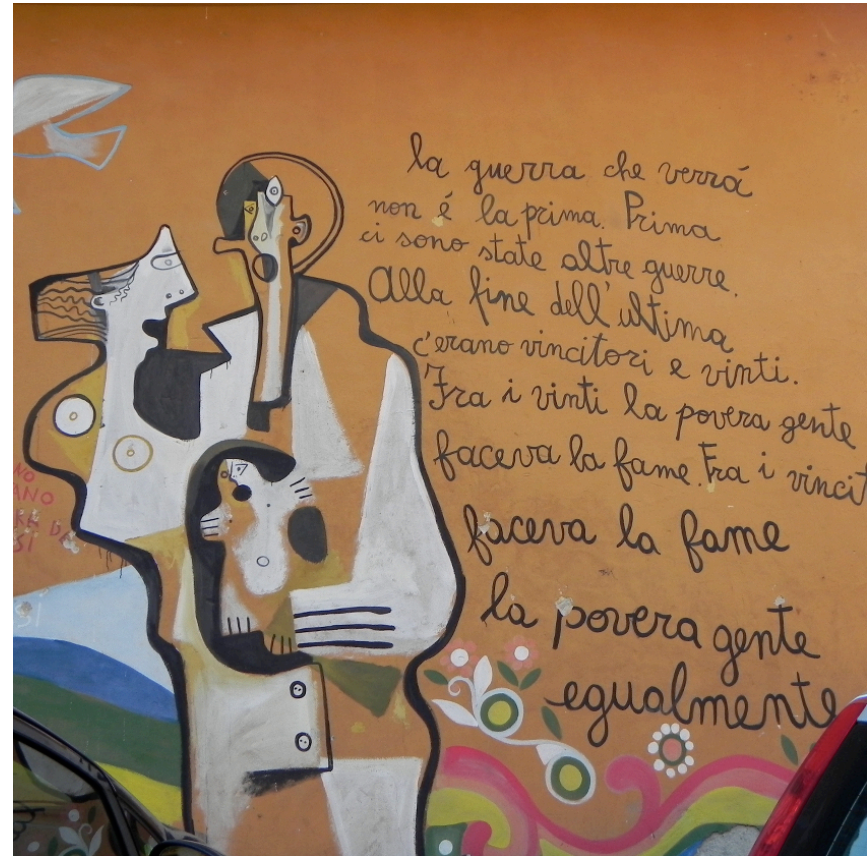 la guerra che verrá
non é la prima. Prima
ci sono state altre guerre.
Alla fine dell'ultima
c'erano vincitori e vinti.
Fra i vinti la povera gente
faceva la fame. Fra i vincit
faceva la fame
la povera gente
egualmente
NO
ANO
RE DE
SI